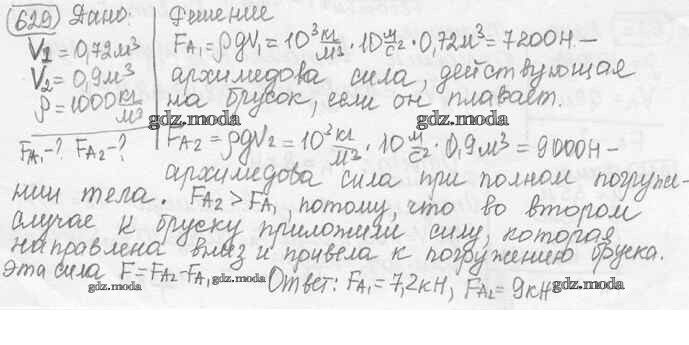 629 Дано:
V1 = 0,72м³
V2 = 0,9м³
ρ = 1000 кг/м³
FA1 - ? FA2 - ?
Решение
FA1 = ρgV1 = 10³ кг/м³ · 10 м/с² · 0,72м³ = 7200Н –
архимедова сила, действующая
на брусок, если он плавает.
gdz.moda gdz.moda
FA2 = ρgV2 = 10³ кг/м³ · 10 м/с² · 0,9м³ = 9000Н –
архимедова сила при полном погруже-
нии тела. FA2 > FA1, потому, что во втором
случае к бруску приложили силу, которая
направлена вниз и привела к погружению бруска.
Эта сила F = FA2 - FA1 Ответ: FA1 = 7,2кН, FA2 = 9кН
gdz.moda gdz.moda gdz.moda gdz.moda